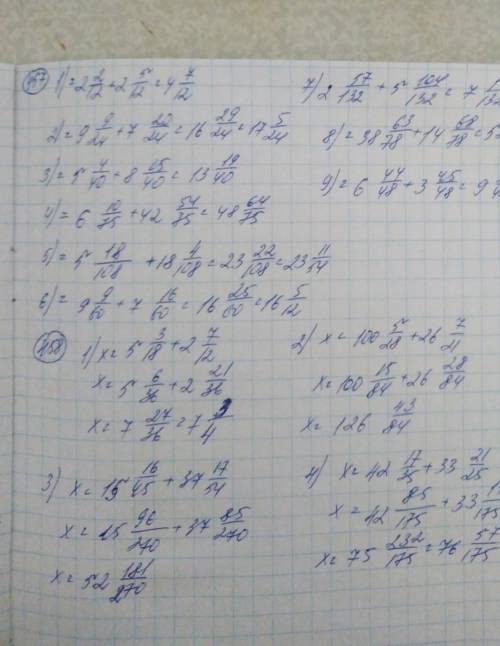 457 1) = 2 2/12 + 2 5/12 = 4 7/12
2) = 9 9/24 + 7 20/24 = 16 29/24 = 17 5/24
3) = 5 4/40 + 8 15/40 = 13 19/40
4) = 6 10/75 + 42 54/75 = 48 64/75
5) = 5 18/108 + 18 4/108 = 23 22/108 = 23 11/54
6) = 9 9/60 + 7 16/60 = 16 25/60 = 16 5/12
7) 2 57/132 + 5 104/132 = 7
8) = 38 63/78 + 14 68/78 =
9) = 6 44/48 + 3 45/48 = 9
458 1) x = 5 3/18 + 2 7/12
x = 5 6/36 + 2 21/36
x = 7 27/36 = 7 3/4
2) x = 100 5/28 + 26 7/21
x = 100 15/84 + 26 28/84
x = 126 43/84
3) x = 15 16/45 + 37 17/54
x = 15 96/270 + 37 85/270
x = 52 181/270
4) x = 42 17/35 + 33 21/25
x = 42 85/175 + 33
x = 75 232/175 = 76 57/175